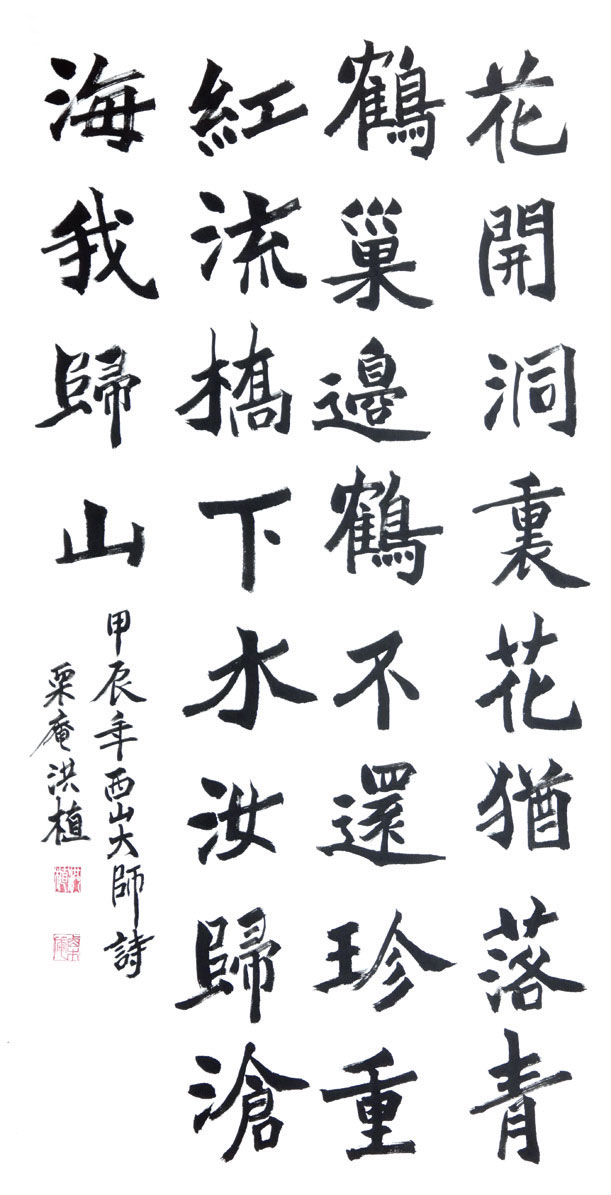 花開洞裏花猶落青
鶴巢邊鶴不還珍重
紅流橋下水汝歸滄
海我歸山
甲辰年西山大師詩
栗庵洪植